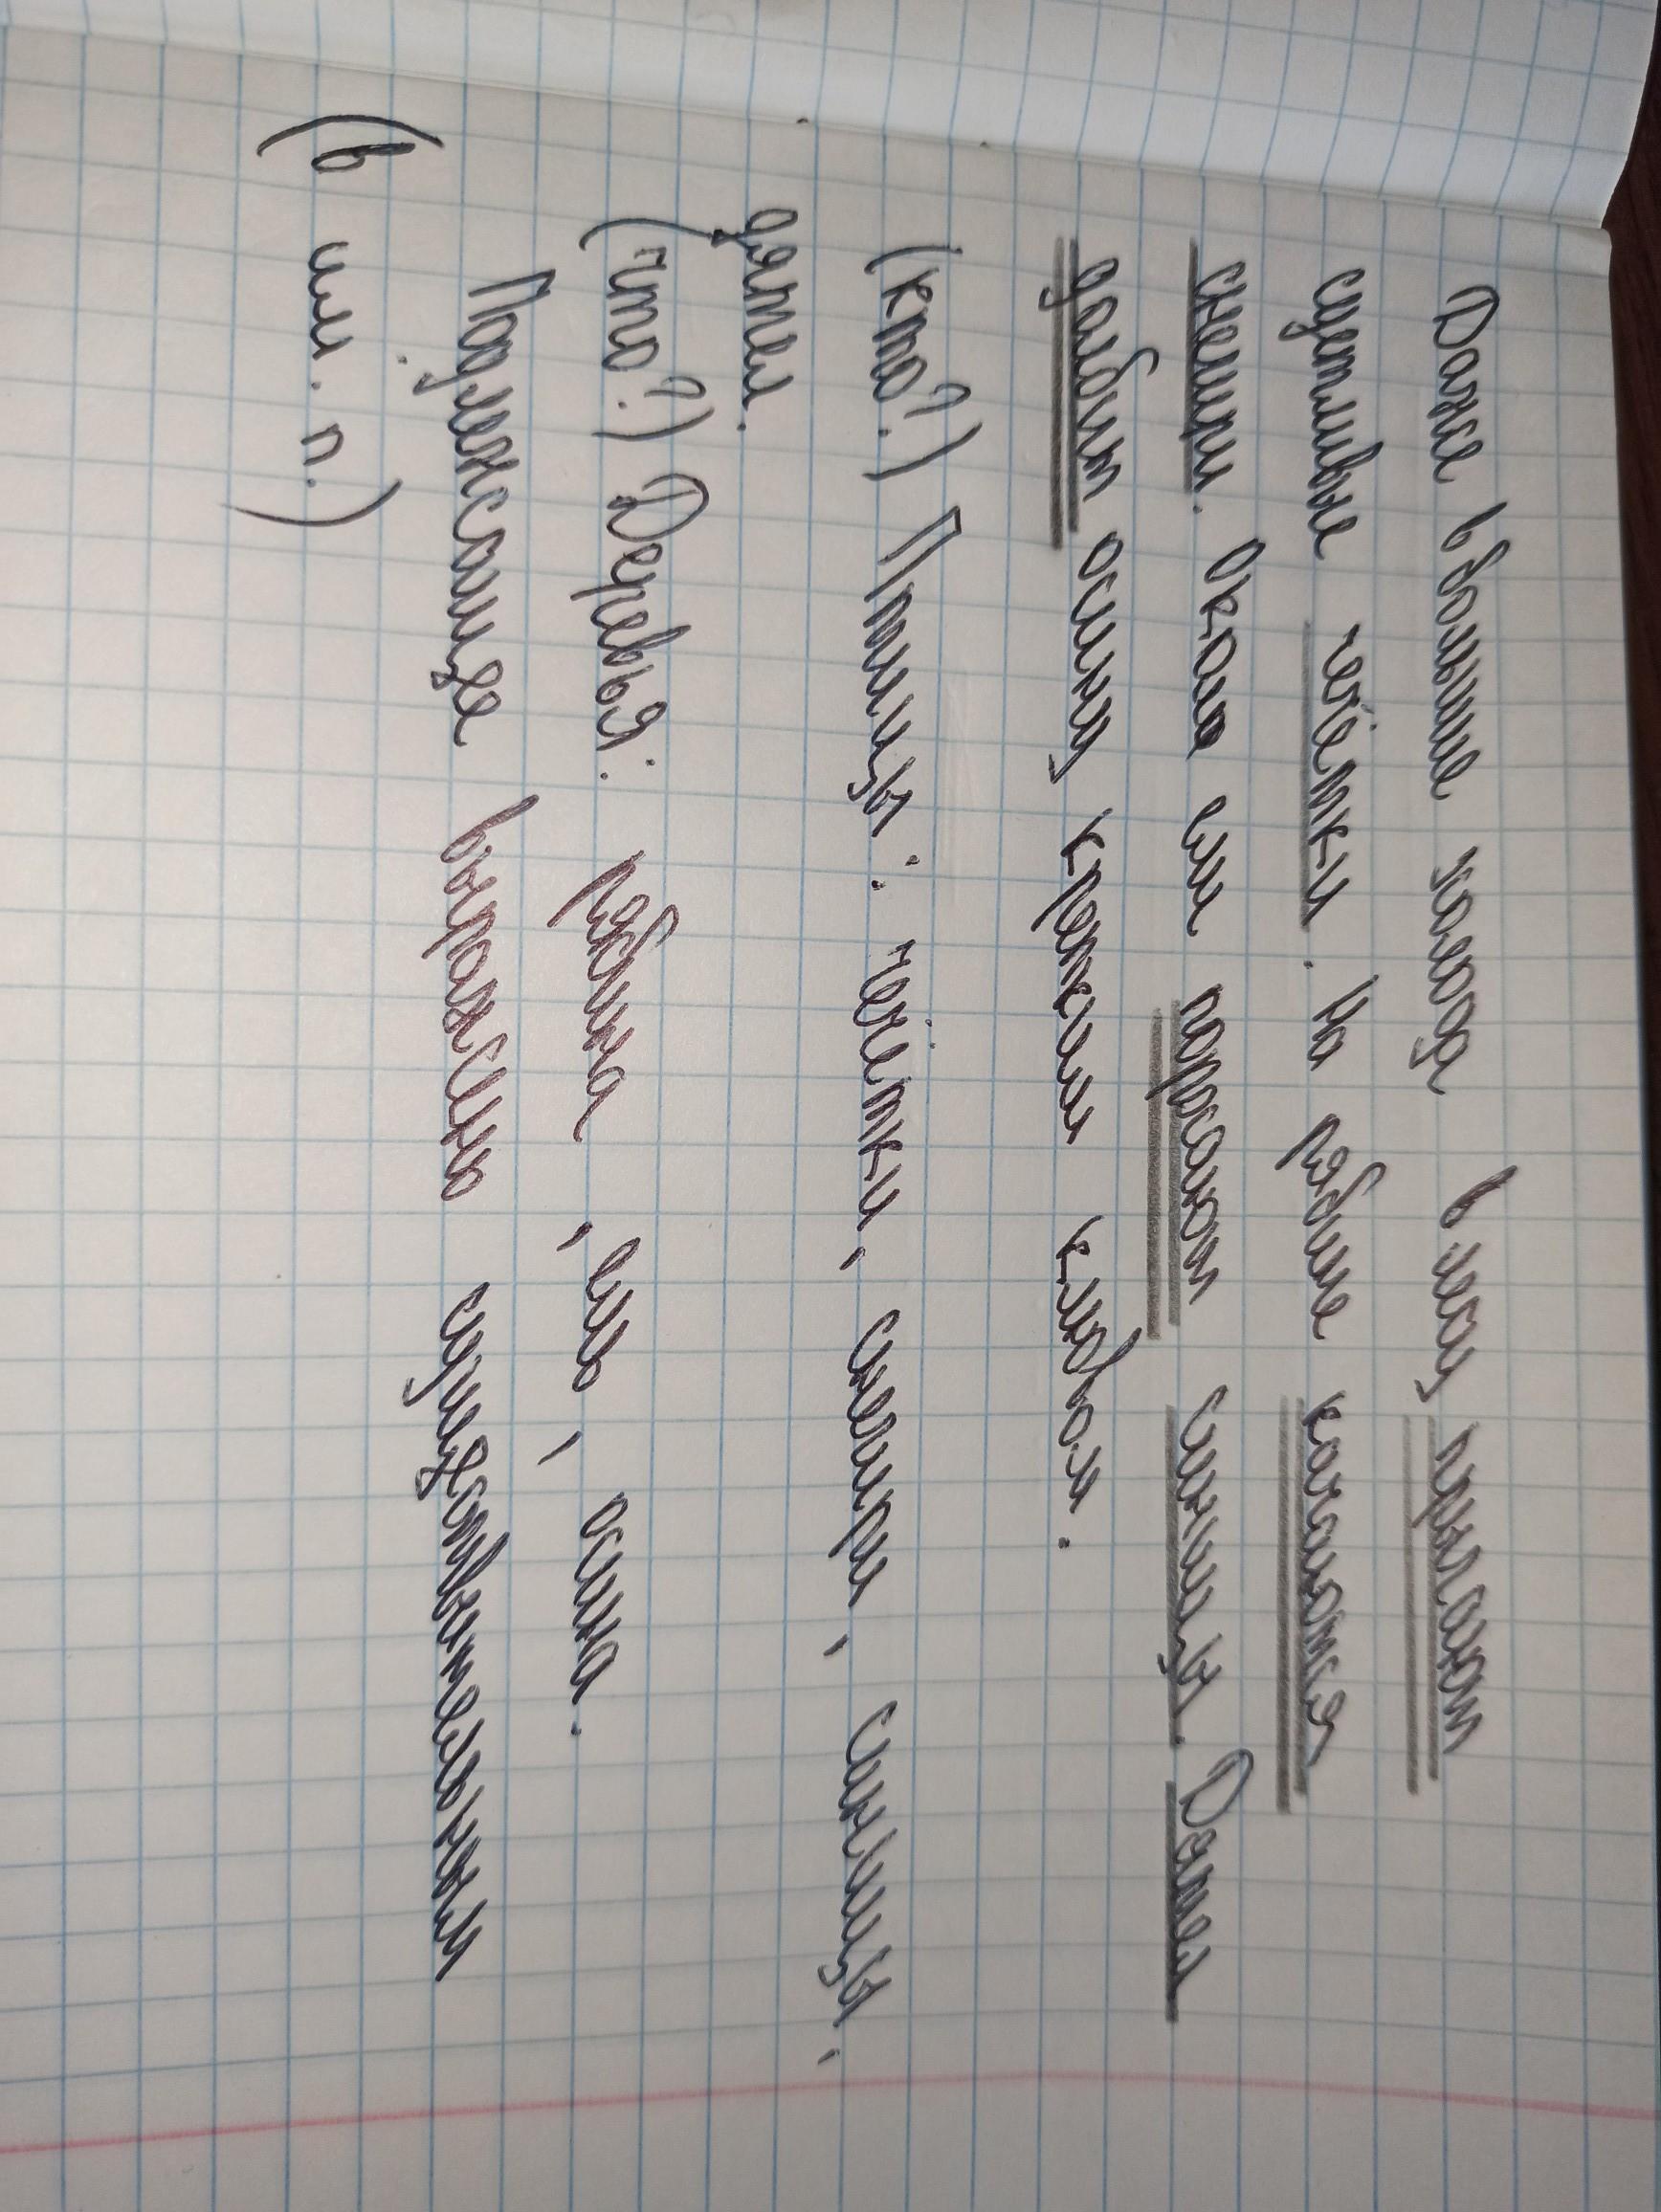 Даже в большие холода в лесу прыгают
суетливые чечётки. На рябине качаются
снегири. Около ели порхают синицы. Дятел
долбит осину крепким клювом.
(кто?) Птицы: чечётки, снегири, синицы,
дятел.
(что?) Деревья: рябина, ель, осина.
Подлежащее выражено существительным
(в им. п.)